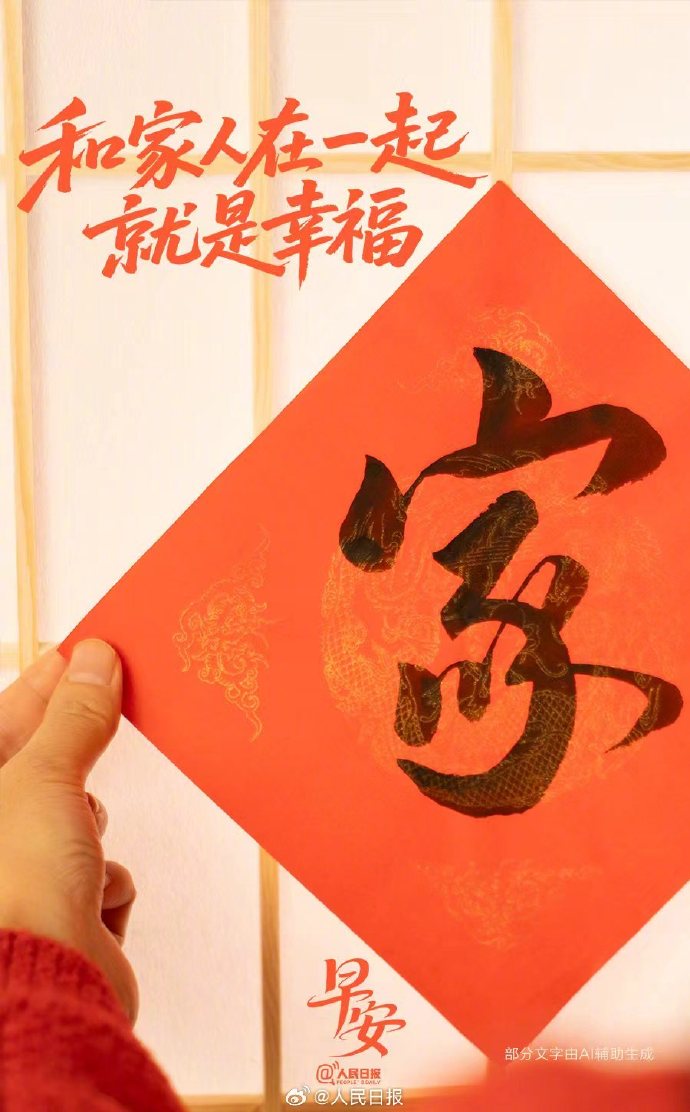 和家人在一起
就是幸福
家
早安
@人民日报
PEOPLE'S DAILY
部分文字由AI辅助生成
@人民日报